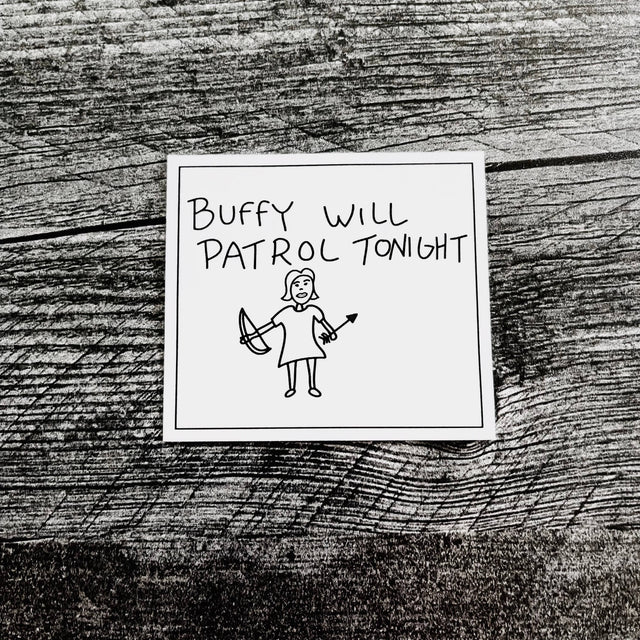 BUFFY WILL
PATROL TONIGHT